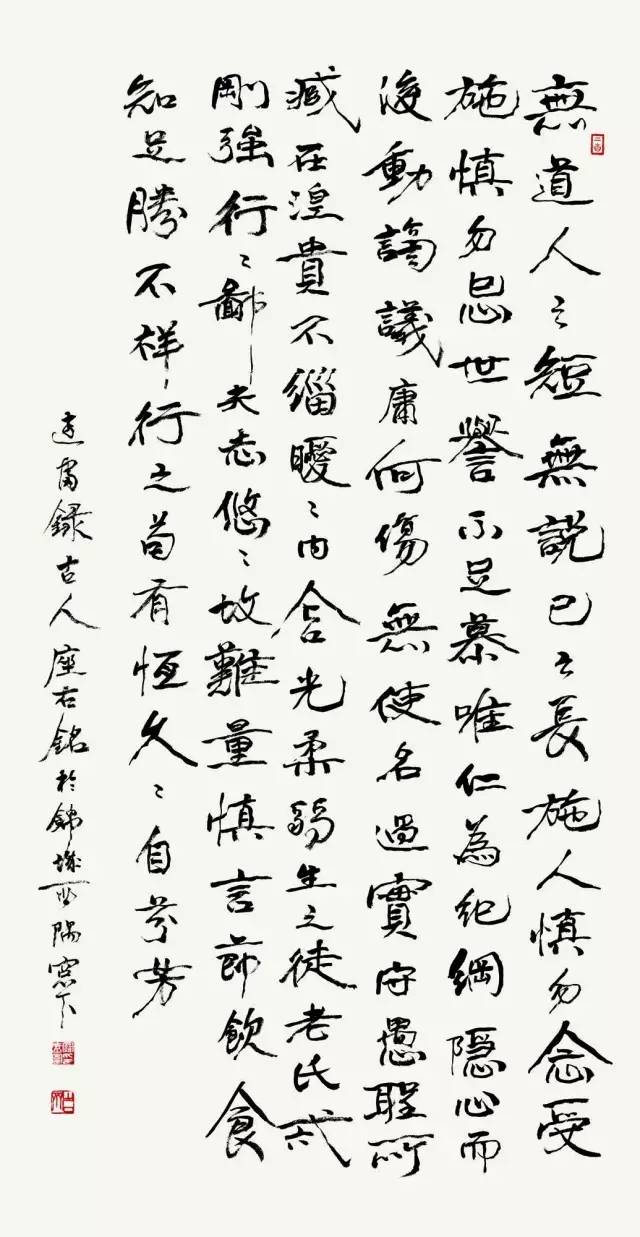 無道人之短無説己之長施人慎勿念受
施慎勿忘世譽不足慕唯仁為紀綱隱心而
後動謗議庸何傷無使名過實守愚聖所
臧在涅貴不緇曖〻内含光柔弱生之徒老氏戒
剛強行〻鄙夫志悠〻故難量慎言節飲食
知足勝不祥行之苟有恆久〻自芬芳
録古人座右銘於錦城西隅窓下